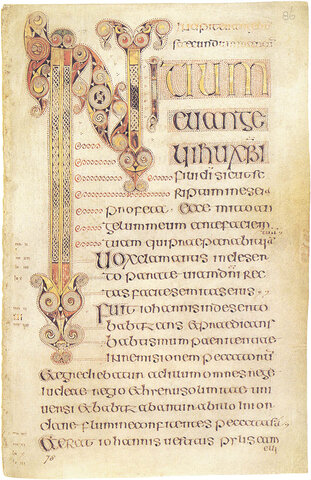 86
secundum
INITIUM
euange
lii ihu xpi
fili di sicut sc
riptum in esei
profeta Ecce mitto an
gelum meum ante faciem
tuam qui praeparabit uiam
tuam
Uox clamantis in deser
to parate uiam dni rec
tas facite semitas eius
Fuit iohannis in deserto
babtizans et praedicans
babtismum paenitentiae
in remisionem peccatorum
Et egrediebatur ad illum omnes rege
iudeae regio et herusolimitae uni
uersi et babtizabantur ab illo in ior
dane flumine confitentes peccata sua
Et erat iohannis uestitus pylis cam
eli
78